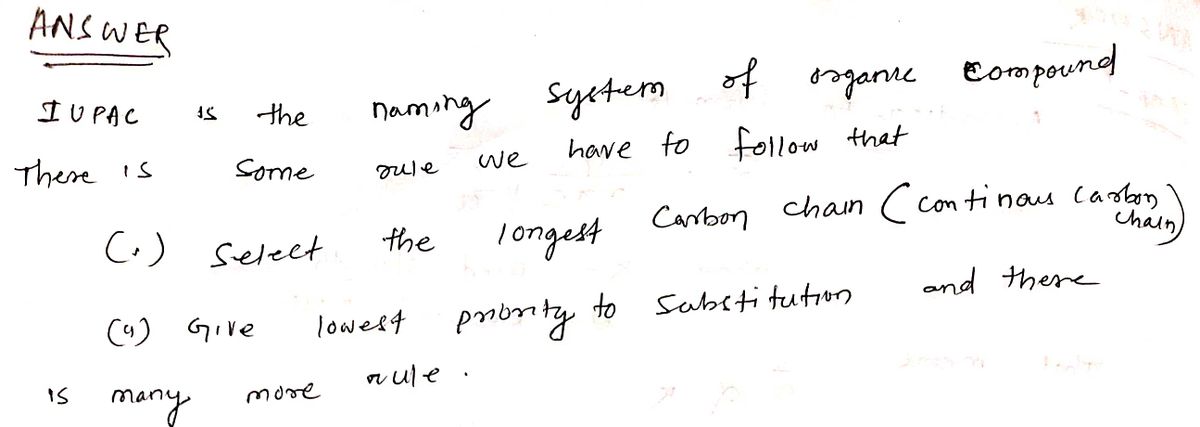 ANSWER
IUPAC is the naming system of organic compound
There is some rule we have to follow that
(i) Select the longest Carbon chain (continous carbon chain)
(ii) Give lowest priority to substitution and there
is many more rule.